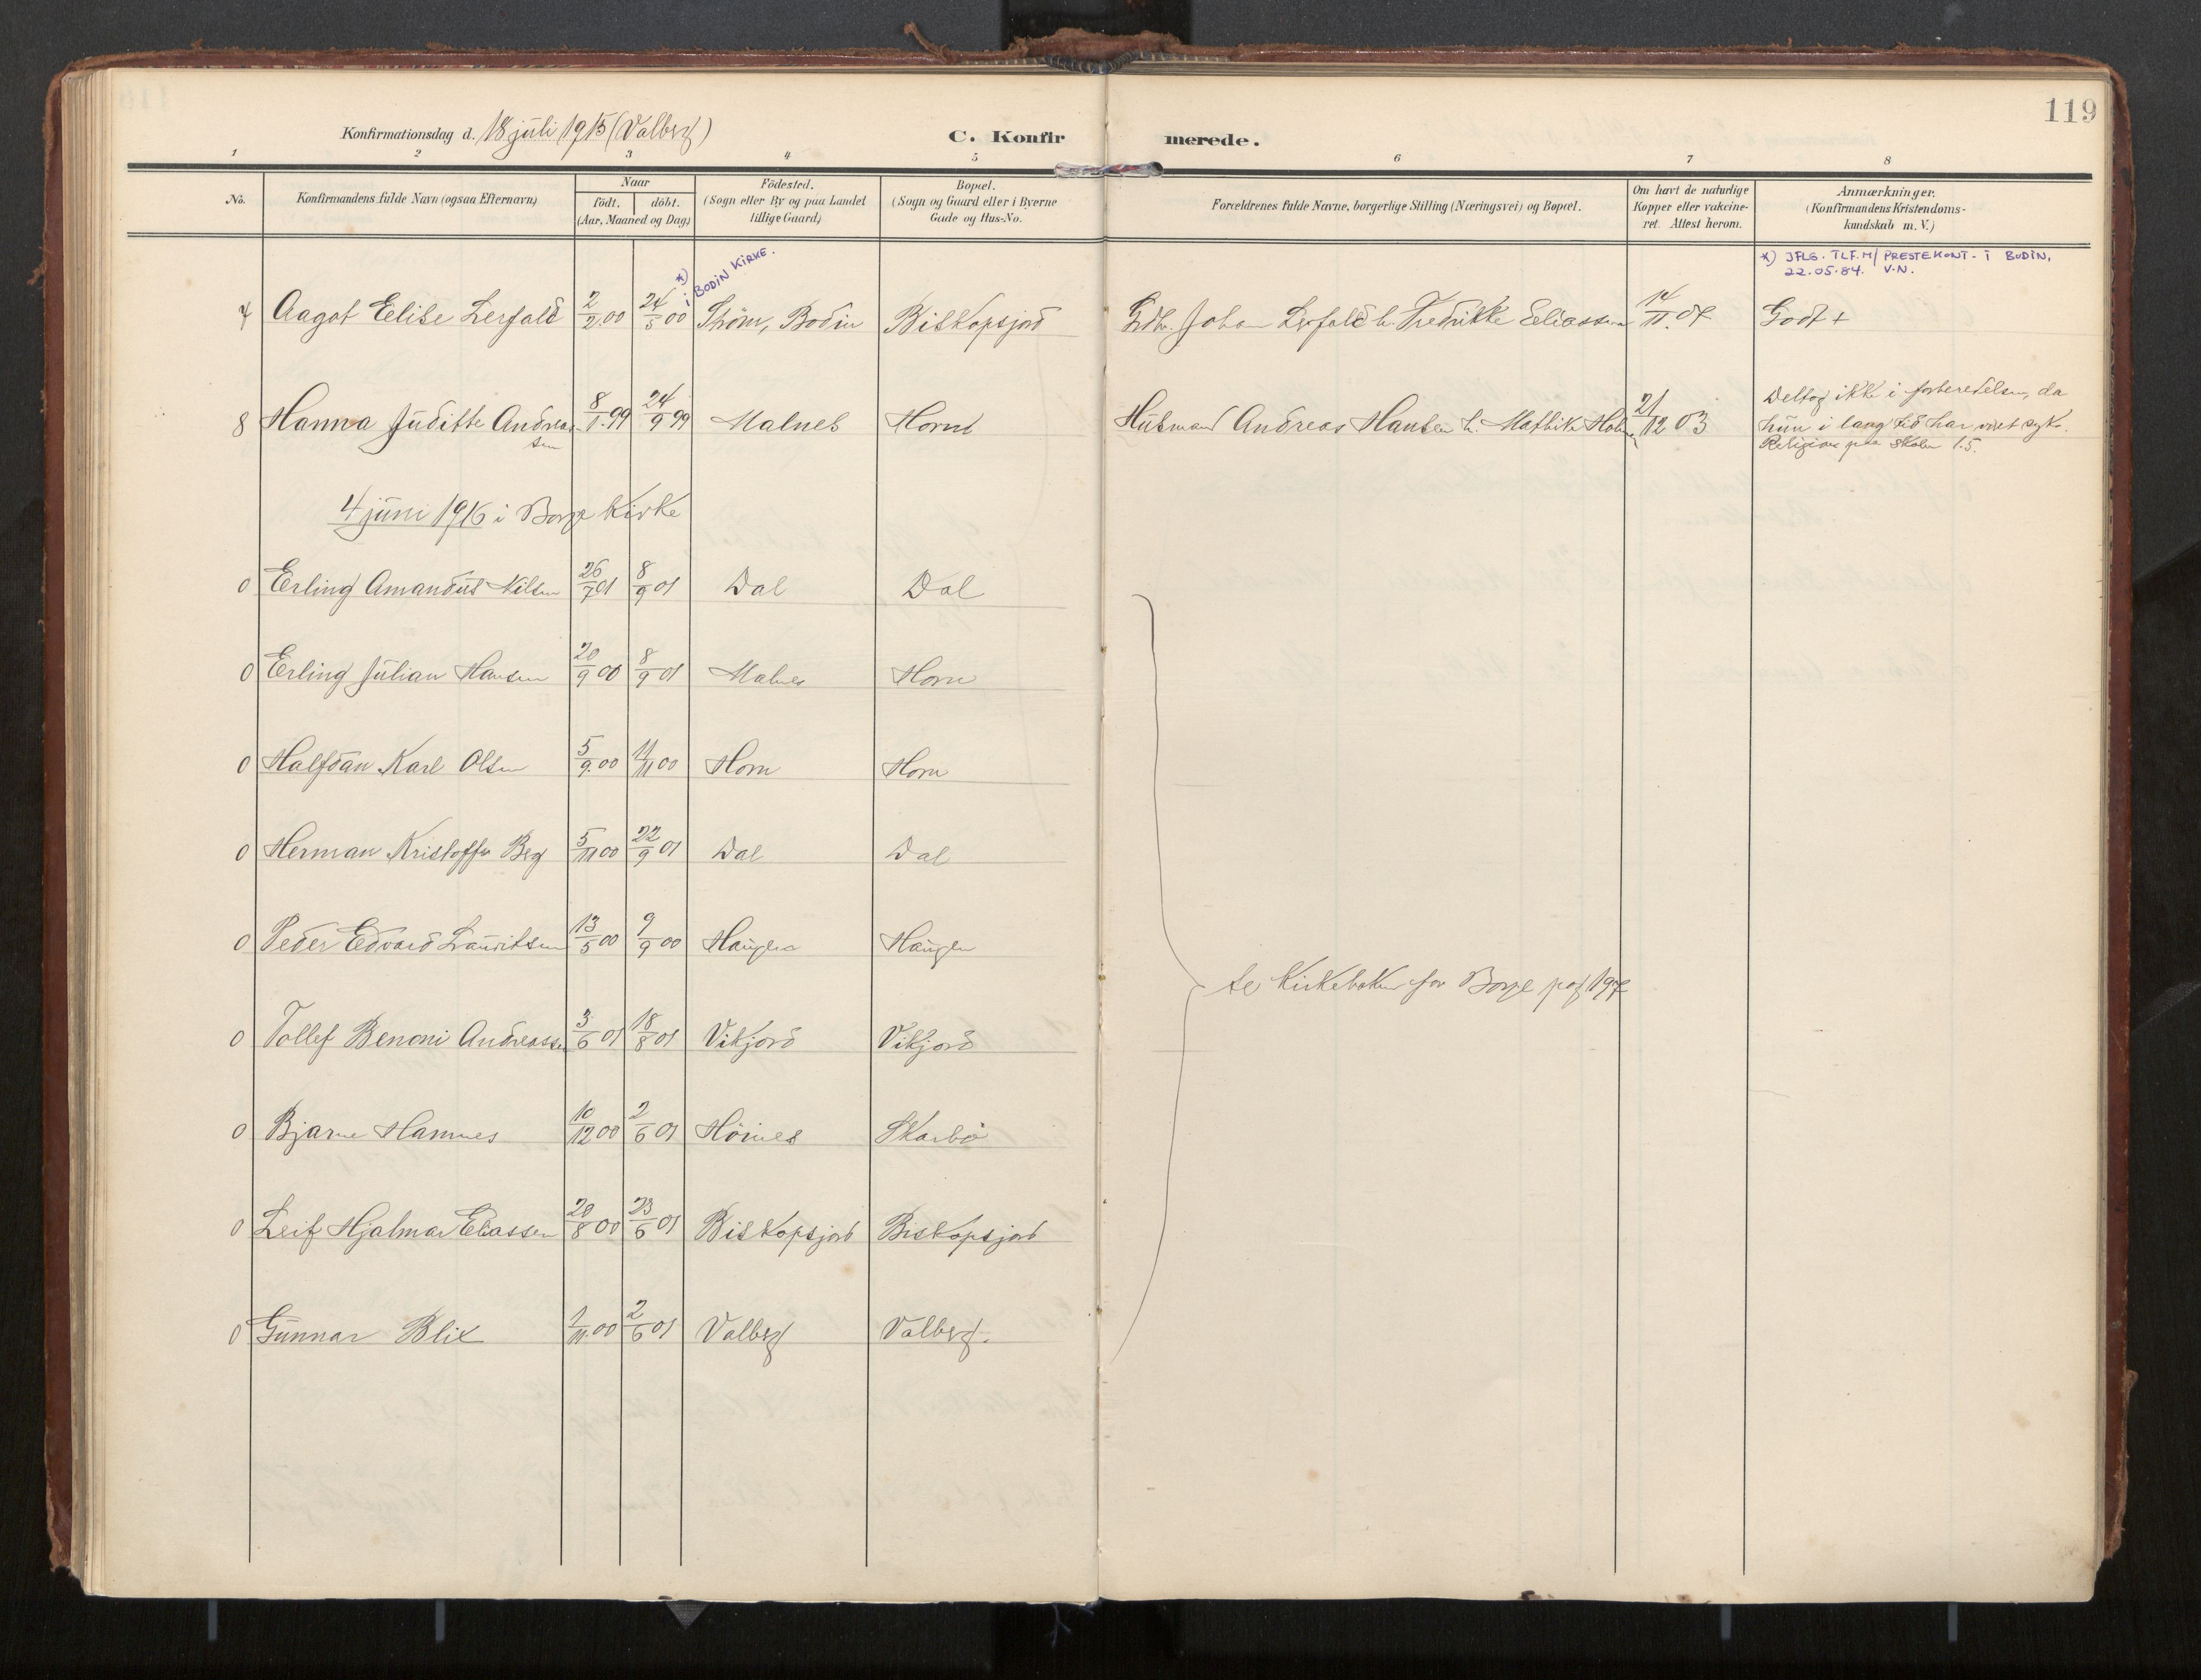 119
Konfirmationsdag d. 18 juli 1915 (Valberg)
C. Konfirmerede.
1 2 3 4 5 6 7 8
No.
Konfirmandens fulde Navn (ogsaa Efternavn)
Naar
født. døbt.
(Aar, Maaned og Dag)
Fødested.
(Sogn eller By og paa Landet
tillige Gaard)
Bopæl.
(Sogn og Gaard eller i Byerne
Gade og Hus-No.
Forældrenes fulde Navne, borgerlige Stilling (Næringsvei) og Bopæl.
Om havt de naturlige
Kopper eller vakcine-
ret. Attest herom.
Anmærkninger.
(Konfirmandens Kristendoms-
kundskab m. V.)
*) i BODIN KIRKE.
*) JFLG. TLF. M/ PRESTEKONT. i BODIN,
22.05.84. V.N.
7 Aagot Elise Lerfald 2/2.00 24/5 00 Strøm, Bodin Biskopsjord Gdbr. Johan Lerfald h. Fredrikke Eliassen 14/11.07 Godt +
8 Hanna Juditte Andreassen 8/1.99 24/9 99 Malnes Horn Husmand Andreas Hansen h. 21/12 03 Deltog ikke i forberedelsen, da
hun i lang tid har været syk.
Religion paa skolen 1.5.
4 juni 1916 i Borge Kirke
0 Erling Amandus Nilsen 26/7 01 8/9 01 Dal Dal
0 Erling Julian Hansen 20/9 00 8/9 01 Malnes Horn
0 Halfdan Karl Olsen 5/9.00 11/11 00 Horn Horn
0 Herman Kristoffer Berg 5/11 00 22/9 01 Dal Dal
0 Peder Edvard Lauritsen 13/5 00 9/9 00 Haugen Haugen
se Kirkeboken for Borge pag 197
0 Tollef Benoni Andreassen 3/6 01 18/8 01 Vikjord Vikjord
0 Bjarne Hamnes 10/12 00 2/6 01 Høines Skarbø
0 Leif Hjalmar Eliassen 20/8 00 23/6 01 Biskopsjord Biskopsjord
0 Gunnar Blix 1/11.00 2/6 01 Valberg Valberg.